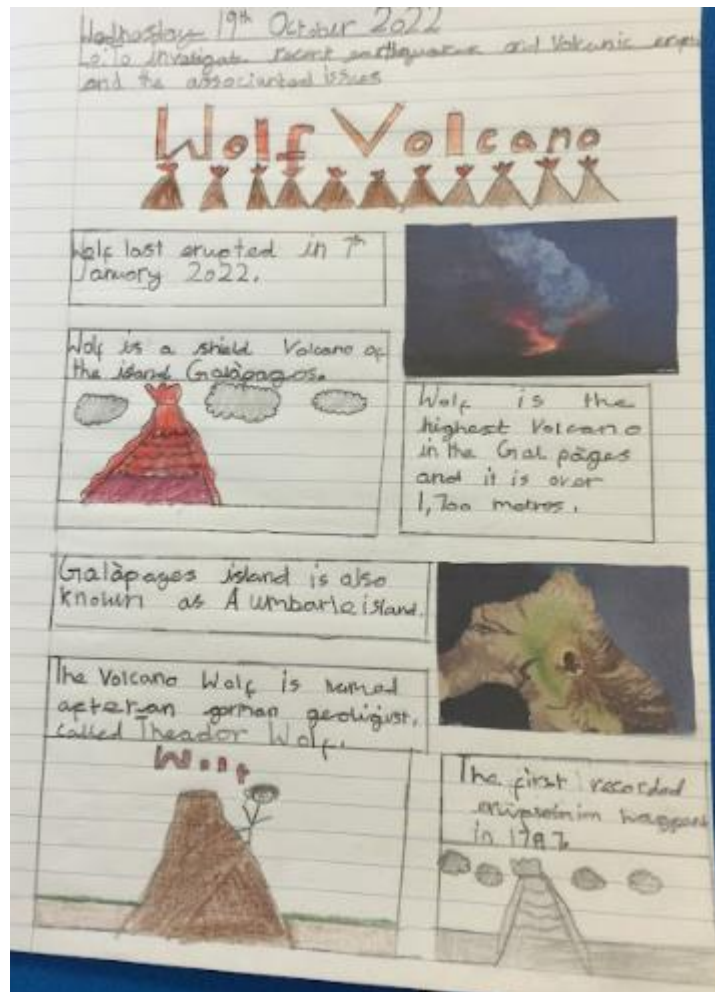 Wednesday 19th October 2022
L.o. To investigate recent earthquakes and Volcanic
and the associated issues
Wolf Volcano
Wolf last erupted in 7th
January 2022.
Wolf is a shield Volcano of
the island Galàpagos.
Wolf is the
highest Volcano
in the Gal pàges
and it is over
1,700 metres.
Galàpages island is also
known as A umbarle island.
The Volcano Wolf is named
after an german geoligist,
called Theador Wolf.
Wolf
The first recorded
in 1797